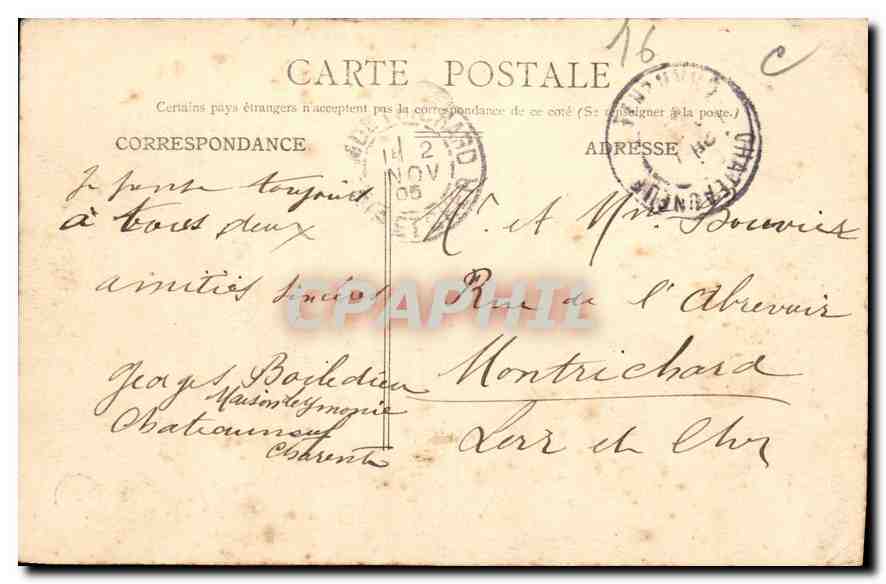 16
C
CARTE POSTALE
Certains pays étrangers n'acceptent pas la correspondance de ce coté (Se renseigner à la poste.)
CORRESPONDANCE
ADRESSE
Je pense toujours
à tous deux
amitiés sincères
Georges Boiledieu
Maison Leymonie
Chateauneuf
Charente
Mr. et Mme. Bouvier
Rue de l'Abrevoir
Montrichard
Loir et Cher
2
NOV
05
CHATEAUNEUF
CPAPHIL